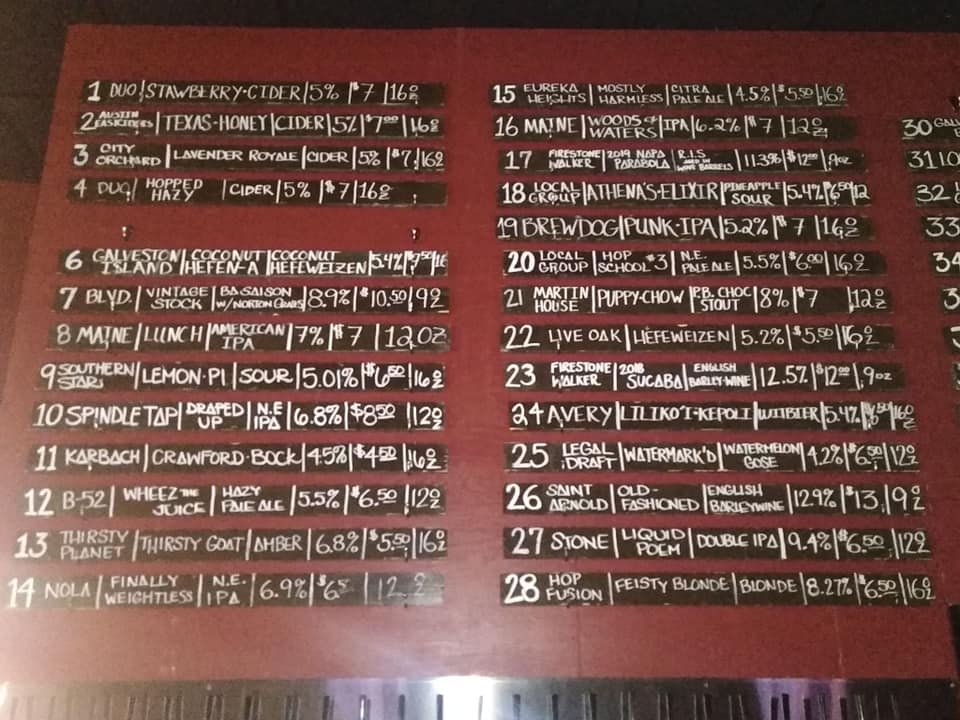 1 DUO STAWBERRY-CIDER 5% $7 16oz
2 AUSTIN EASTCIDERS TEXAS-HONEY CIDER 5% $7.00 16oz
3 CITY ORCHARD LAVENDER ROYALE CIDER 5% $7 16oz
4 DUO HOPPED HAZY CIDER 5% $7 16oz
6 GALVESTON ISLAND COCONUT HEFEN-A COCONUT HEFEWEIZEN 5.4% $7.50 16
7 BLVD. VINTAGE STOCK BA SAISON W/NORTON GRAPES 8.9% $10.50 9oz
8 MAINE LUNCH AMERICAN IPA 7% $7 12oz
9 SOUTHERN STAR LEMON-PI SOUR 5.01% $6.50 16oz
10 SPINDLE TAP DRAPED UP N.E IPA 6.8% $8.50 12oz
11 KARBACH CRAWFORD-BOCK 4.5% $4.50 16oz
12 B-52 WHEEZ THE JUICE HAZY PALE ALE 5.5% $6.50 12oz
13 THIRSTY PLANET THIRSTY GOAT AMBER 6.8% $5.50 16oz
14 NOLA FINALLY WEIGHTLESS N.E. IPA 6.9% $6 12oz
15 EUREKA HEIGHTS MOSTLY HARMLESS CITRA PALE ALE 4.5% $5.50 16oz
16 MAINE WOODS & WATERS IPA 6.2% $7 12oz
17 FIRESTONE WALKER 2019 NAPA PARABOLA R.I.S. AGED IN WINE BARRELS 11.3% $12.00 9oz
18 LOCAL GROUP ATHENA'S-ELIXIR PINEAPPLE SOUR 5.4% $6.50 12
19 BREWDOG PUNK-IPA 5.2% $7 16oz
20 LOCAL GROUP HOP SCHOOL #3 N.E. PALE ALE 5.5% $6.00 16oz
21 MARTIN HOUSE PUPPY-CHOW P.B. CHOC STOUT 8% $7 12oz
22 LIVE OAK HEFEWEIZEN 5.2% $5.50 16oz
23 FIRESTONE WALKER 2018 SUCABA ENGLISH BARLEY-WINE 12.5% $12.00 9oz
24 AVERY LILIKO'I-KEPOLO WITBIER 5.4% $6.50 16oz
25 LEGAL DRAFT WATERMARK'D WATERMELON GOSE 4.2% $6.50 12oz
26 SAINT ARNOLD OLD-FASHIONED ENGLISH BARLEYWINE 12.9% $13 9oz
27 STONE LIQUID POEM DOUBLE IPA 9.4% $6.50 12oz
28 HOP FUSION FEISTY BLONDE BLONDE 8.27% $6.50 16oz
30
31
32
33
34